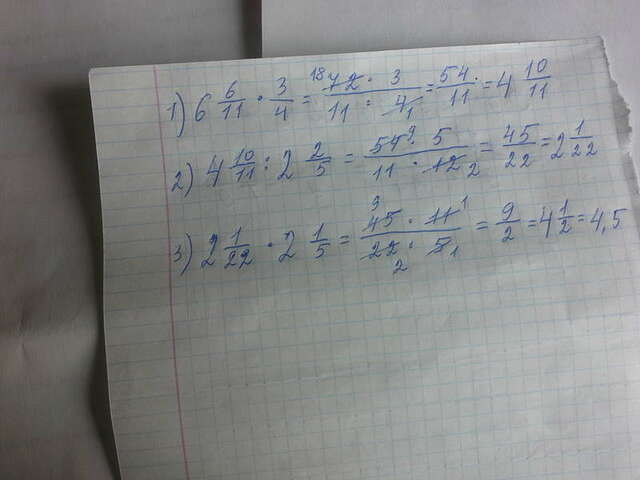 1) 6 6/11 · 3/4 = 18 72 · 3 / 11 · 4 1 = 54/11 = 4 10/11
2) 4 10/11 : 2 2/5 = 54 9 · 5 / 11 · 12 2 = 45/22 = 2 1/22
3) 2 1/22 · 2 1/5 = 3 45 · 11 1 / 22 2 · 5 1 = 9/2 = 4 1/2 = 4,5